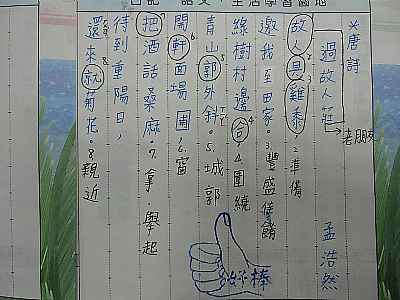 ※唐詩
過故人莊 孟浩然
老朋友
故人具雞黍，2.準備
邀我至田家。3.豐盛佳餚
綠樹村邊合，4.圍繞
青山郭外斜。5.城郭
開軒面場圃，6.窗
把酒話桑麻。7.拿.舉起
待到重陽日，
還來就菊花。8.親近
好棒